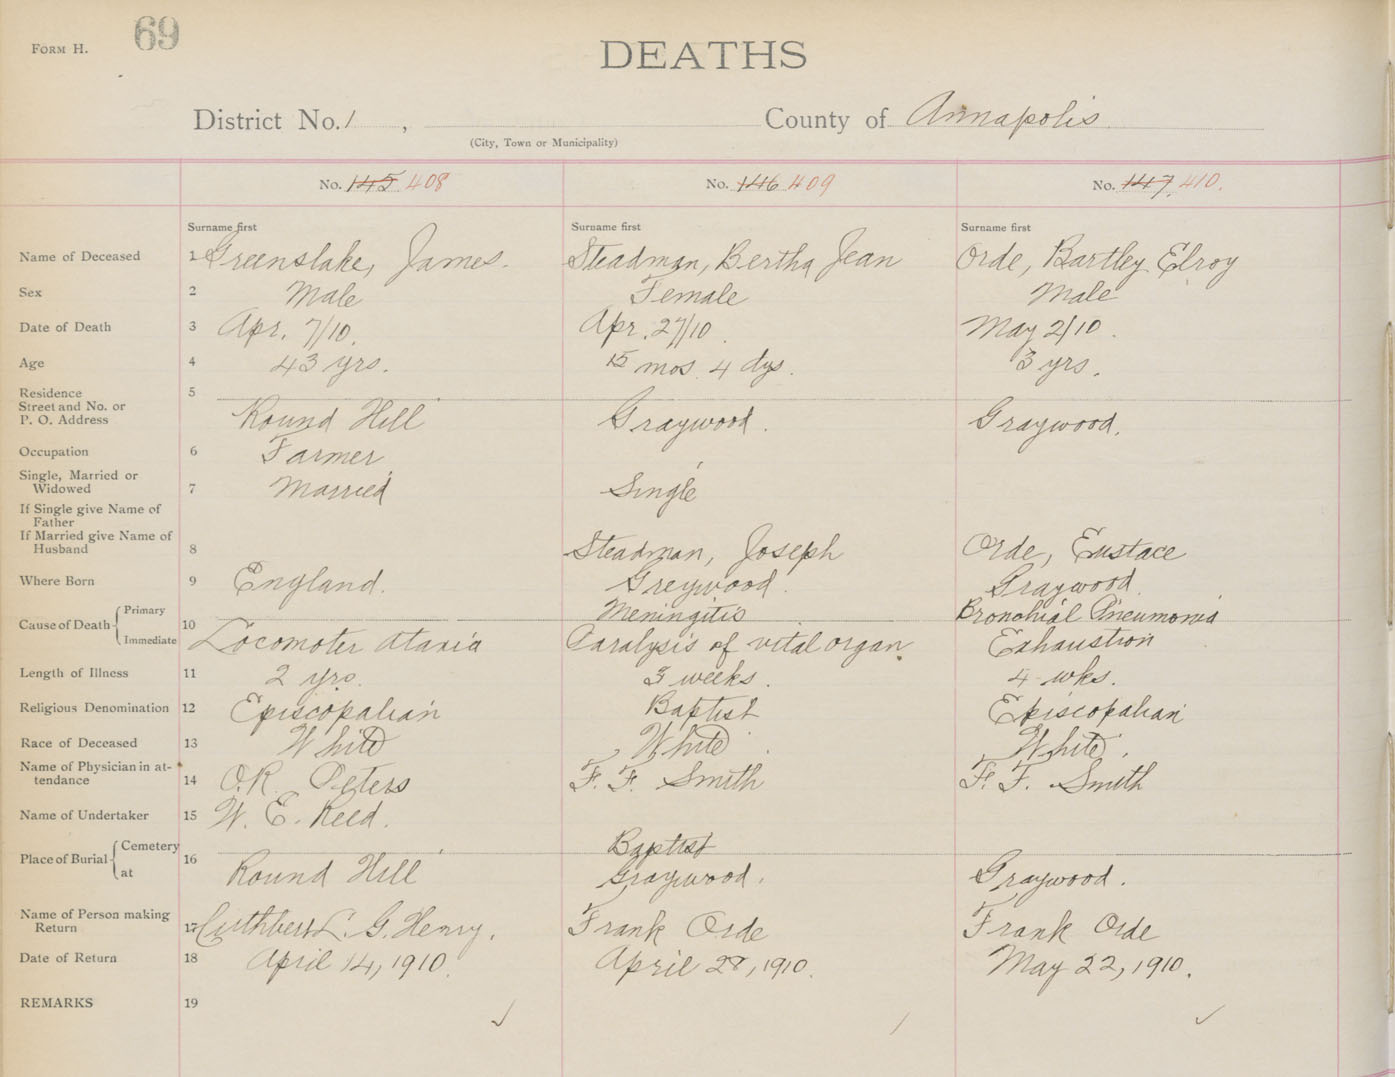 FORM H. 69
DEATHS
District No. 1, County of Annapolis
(City, Town or Municipality)
No. 145 408 No. 146 409 No. 147 410.
Surname first Surname first Surname first
Name of Deceased 1 Greenslake, James. Steadman, Bertha Jean Orde, Bartley Elroy
Sex 2 Male Female Male
Date of Death 3 Apr. 7/10. Apr. 27/10. May 2/10.
Age 4 43 yrs. 15 mos 4 dys. 3 yrs.
Residence 5
Street and No. or
P. O. Address Round Hill Graywood. Graywood.
Occupation 6 Farmer
Single, Married or
Widowed 7 Married Single
If Single give Name of
Father
If Married give Name of
Husband 8 Steadman, Joseph Orde, Eustace
Where Born 9 England. Greywood. Graywood.
Cause of Death Primary 10 Meningitis Bronchial Pneumonia
Immediate Locomoter ataxia Paralysis of vital organ Exhaustion
Length of Illness 11 2 yrs. 3 weeks. 4 wks.
Religious Denomination 12 Episcopalian Baptist Episcopalian
Race of Deceased 13 White White White.
Name of Physician in at-
tendance 14 O.R. Peters F. F. Smith F. F. Smith
Name of Undertaker 15 W. E. Reed.
Place of Burial Cemetery 16 Baptist
at Round Hill Graywood. Graywood.
Name of Person making
Return 17 Cuthbert L. G. Henry. Frank Orde Frank Orde
Date of Return 18 April 14, 1910. April 28, 1910. May 22, 1910.
REMARKS 19